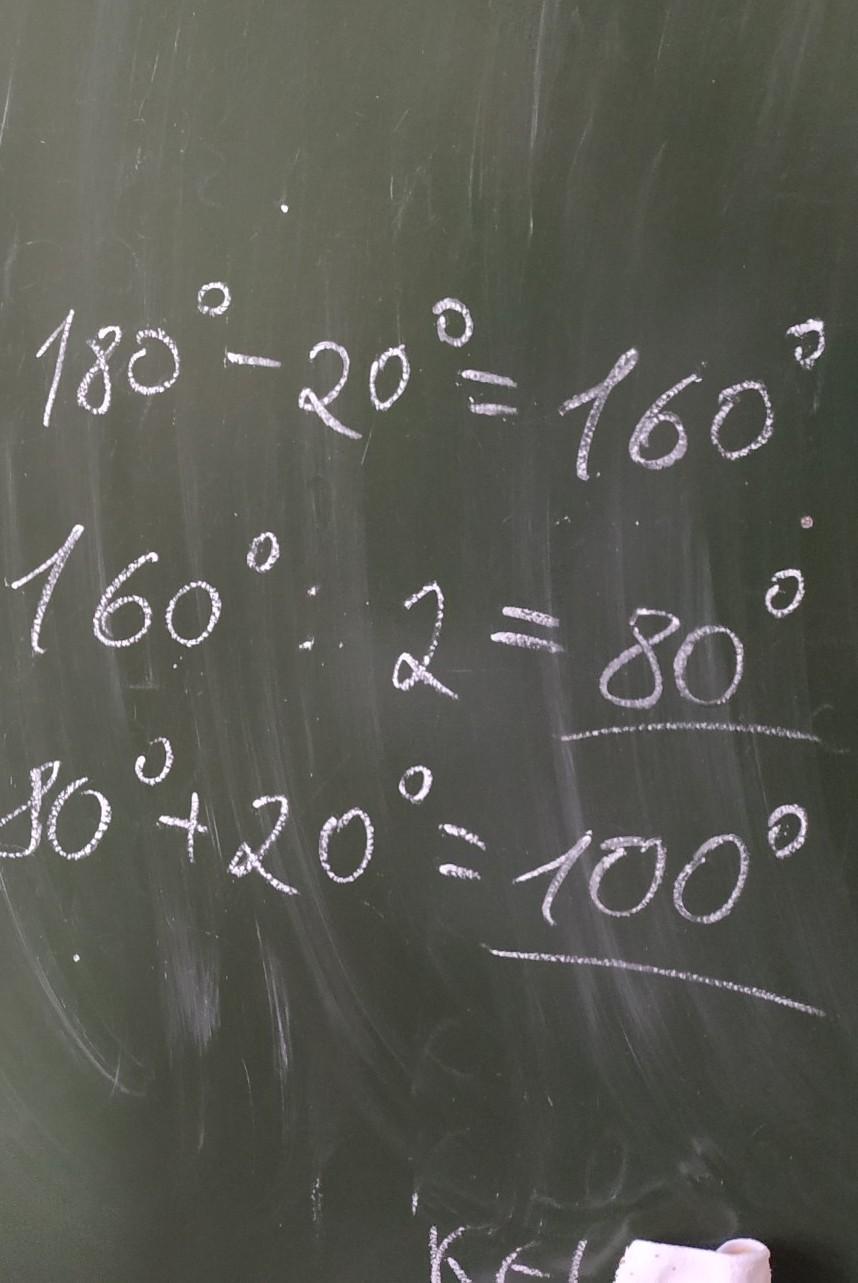 180° - 20° = 160°
160° : 2 = 80°
80° + 20° = 100°